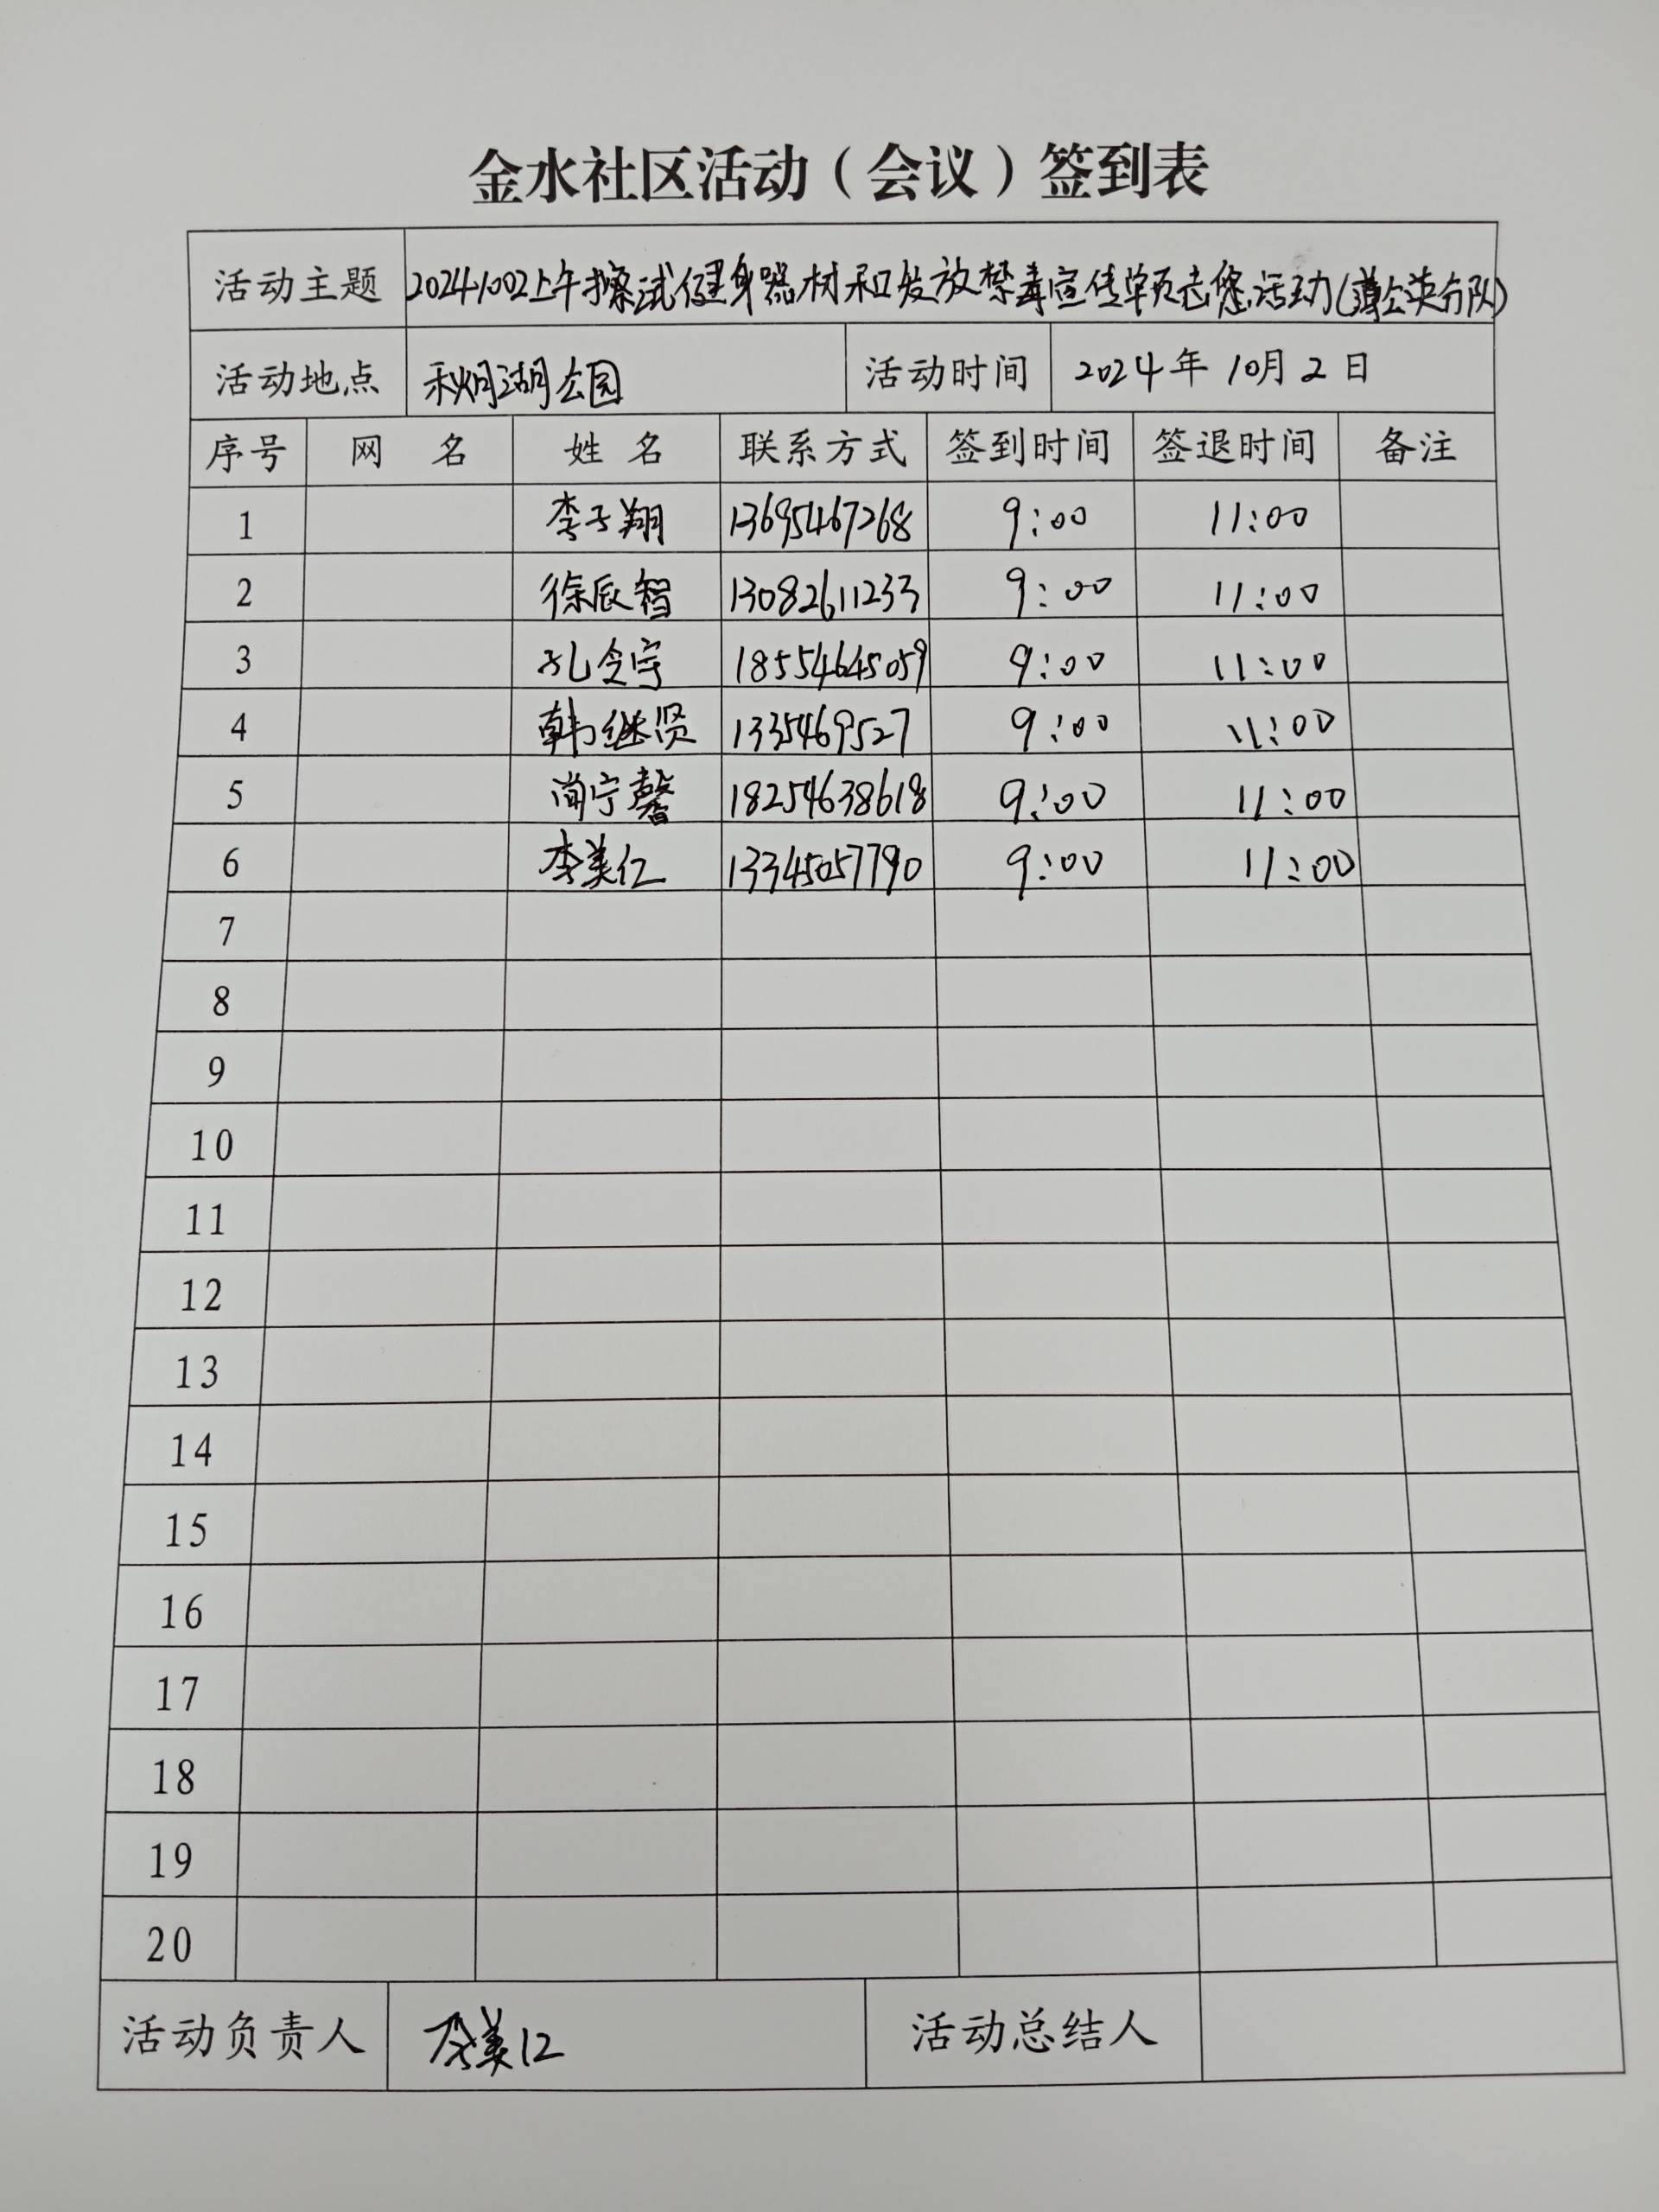 金水社区活动（会议）签到表
活动主题 20241002上午擦试健身器材和发放禁毒宣传单页志愿活动(蒲公英分队)
活动地点 秋月湖公园 活动时间 2024年10月2日
序号 网 名 姓 名 联系方式 签到时间 签退时间 备注
1 李子翔 13695467268 9:00 11:00
2 徐辰智 13082611233 9:00 11:00
3 孔令宇 18554645059 9:00 11:00
4 韩继贤 1335469527 9:00 11:00
5 宁馨 18254638618 9:00 11:00
6 李美仁 13345057790 9:00 11:00
7
8
9
10
11
12
13
14
15
16
17
18
19
20
活动负责人 李美仁 活动总结人